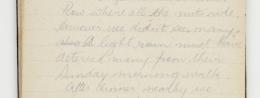 Row where all the nuts ride,
however we didn't see many.
A light rain must have
detered many from their
Sunday morning walk.
After dinner nearly we